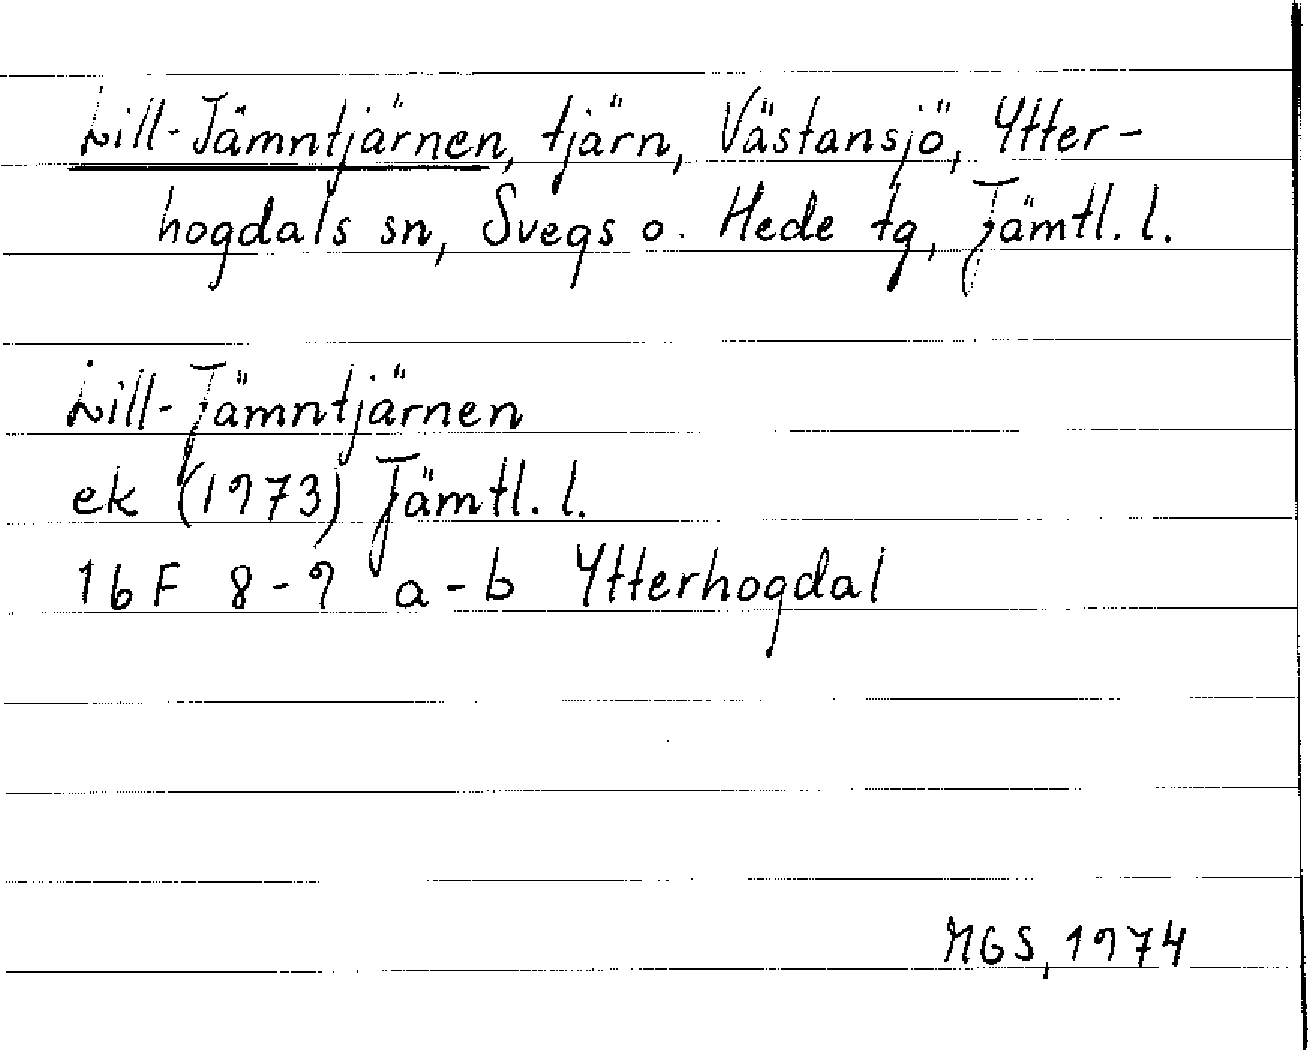 Lill-Jämntjärnen, tjärn, Västansjö, Ytter-
hogdals sn, Svegs o. Hede tg, Jämtl. l.
Lill-Jämntjärnen
ek (1973) Jämtl. l.
16 F 8-9 a-b Ytterhogdal
MGS, 1974